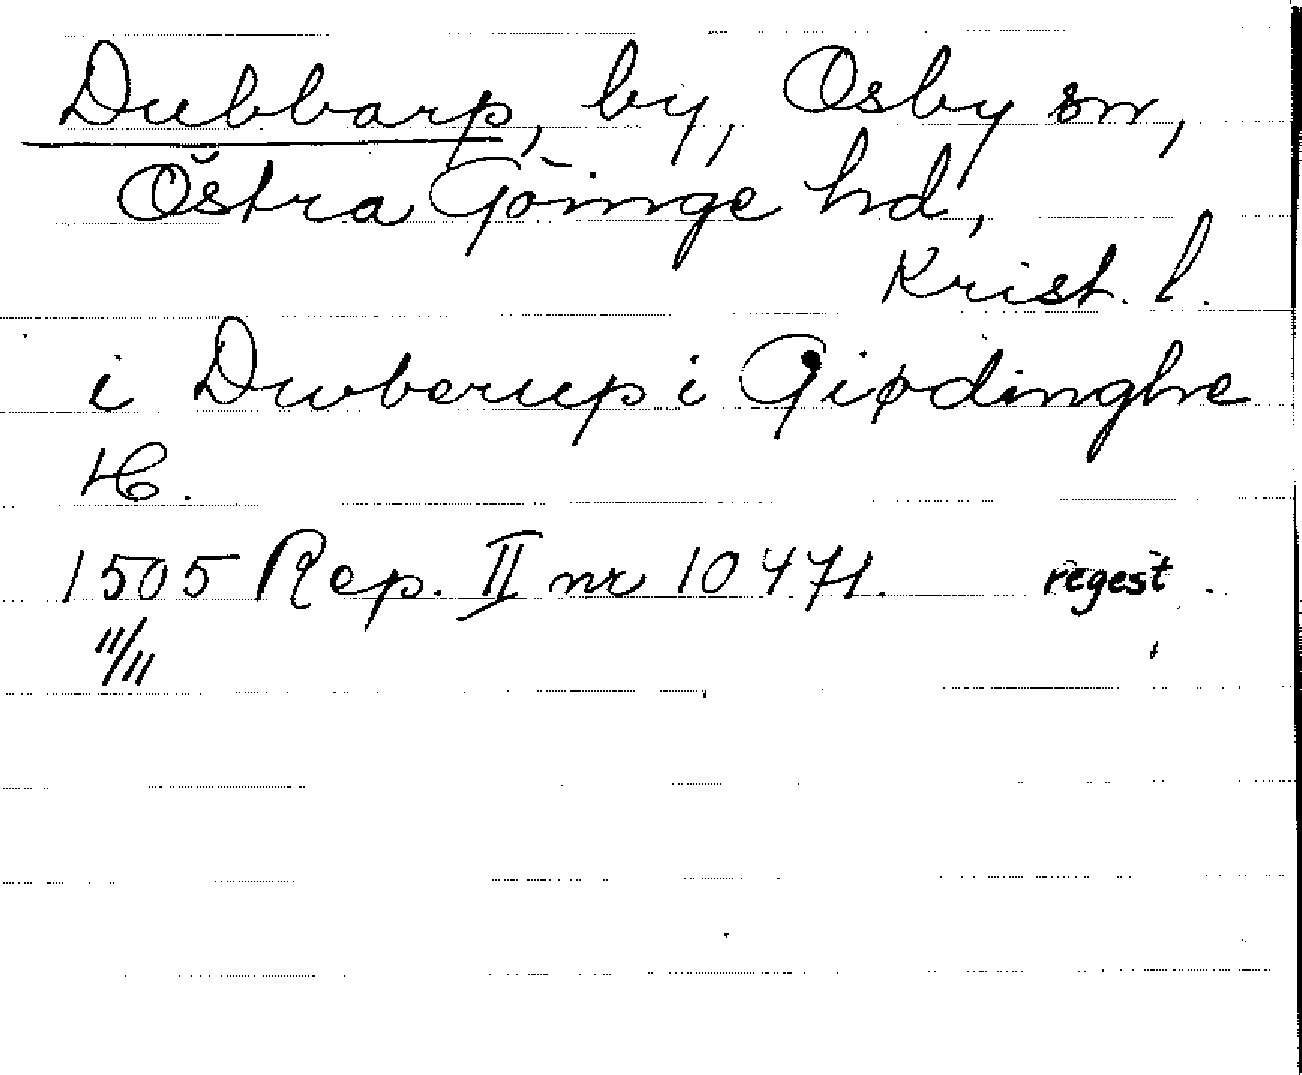 Dubbarp, by, Osby sn,
Östra Göinge hd,
Krist. l.
i Duuberup i Giødinghe
H.
1505 Rep. II nr 10471. regest.
11/11